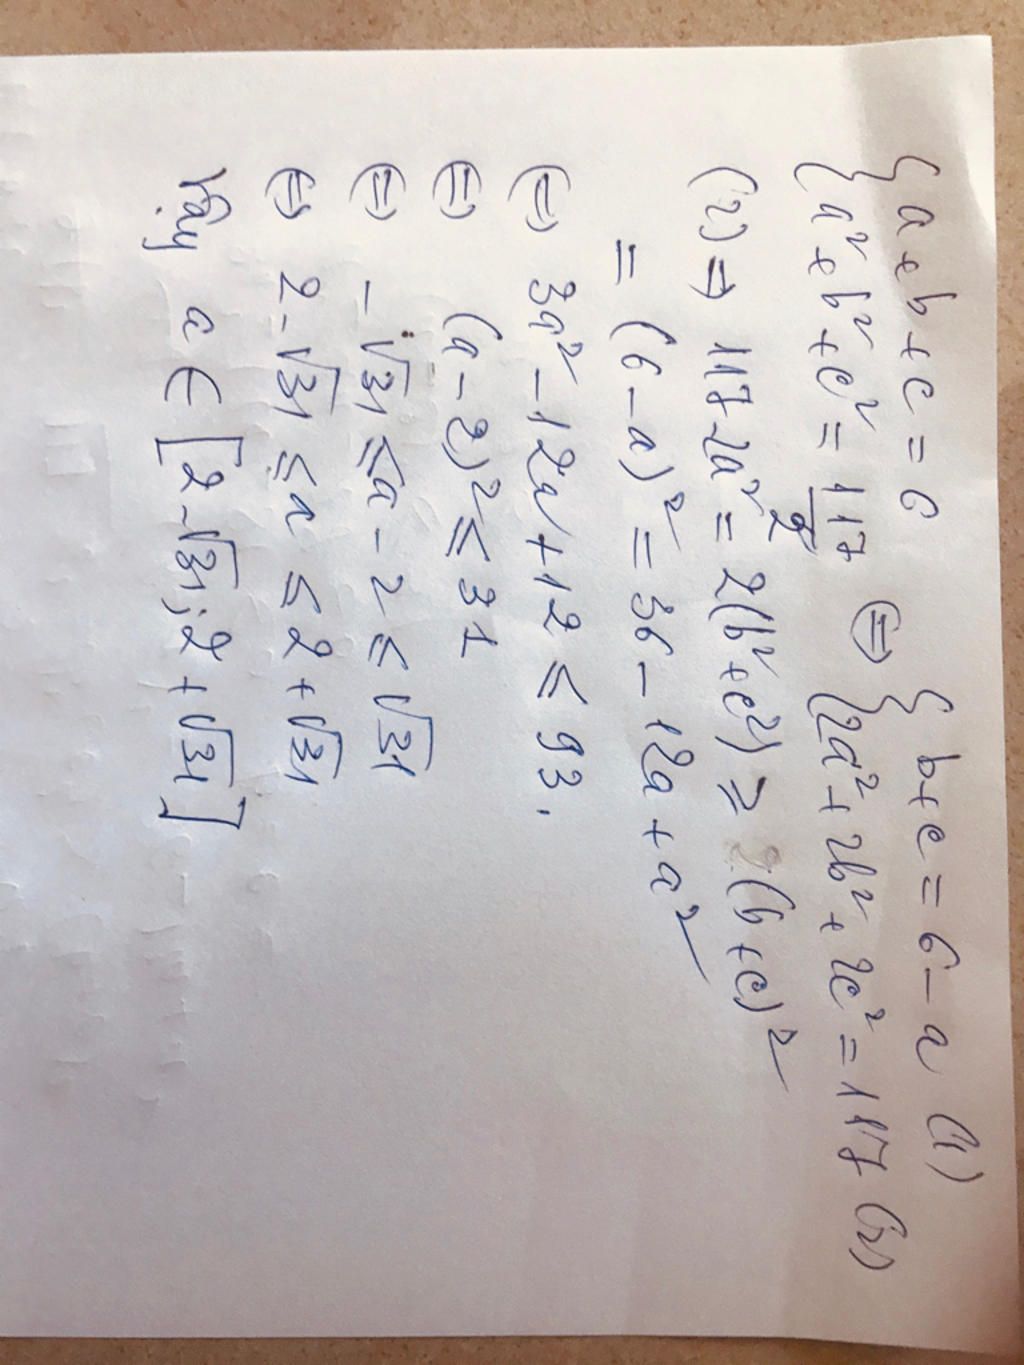 { a + b + c = 6
{ a² + b² + c² = 117/2 ⇔ { b + c = 6 - a (1)
{ 2a² + 2b² + 2c² = 117 (2)
(2) ⇒ 117 - 2a² = 2(b² + c²) ≥ (b + c)²
= (6 - a)² = 36 - 12a + a²
⇔ 3a² - 12a + 12 ≤ 93.
⇔ (a - 2)² ≤ 31
⇔ -√31 ≤ a - 2 ≤ √31
⇔ 2 - √31 ≤ a ≤ 2 + √31
Vậy a ∈ [2 - √31; 2 + √31]